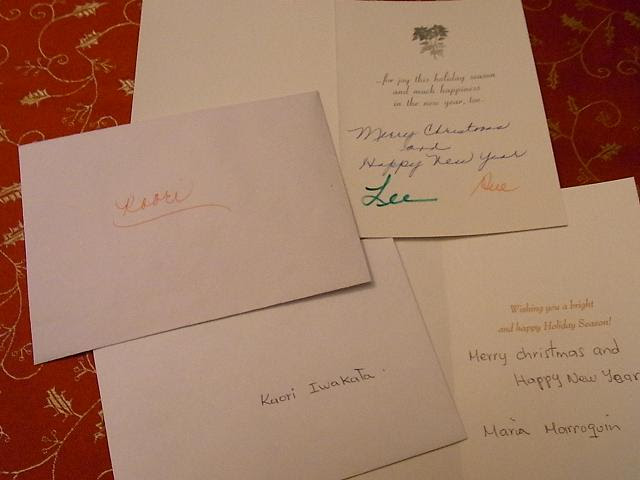 —for joy this holiday season
and much happiness
in the new year, too.
Merry Christmas
and
Happy New Year
Lee Sue
Kaori
Wishing you a bright
and happy Holiday Season!
Merry christmas and
Happy New Year
Maria Marroquin
Kaori Iwakata.